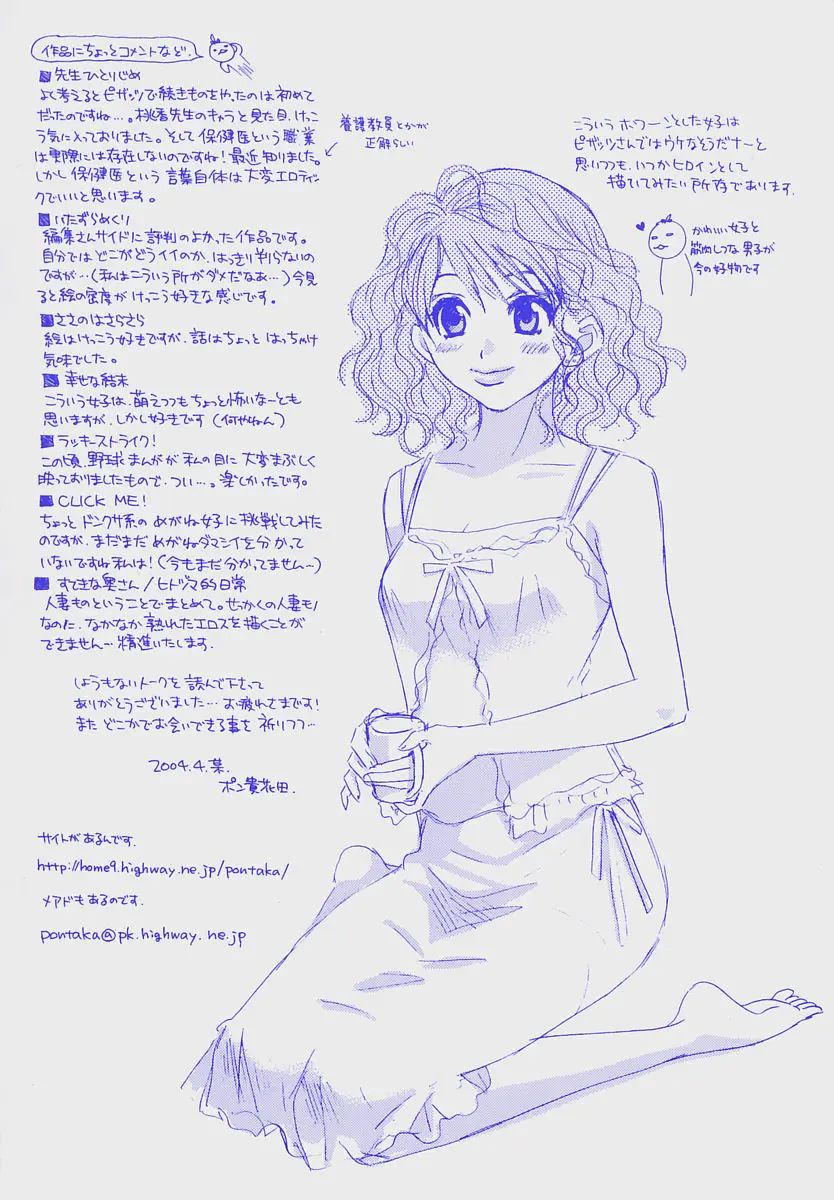 作品にちょっとコメントなど.
■先生ひとりじめ
よく考えるとピザッツで続きものをやったのは初めて
だったのですね…。桃香先生のキャラと見た目.けっこ
う気に入っておりました。そして保健医という職業
は実際には存在しないのですね!最近知りました。
しかし保健医という言葉自体は大変エロティッ
クでいいと思います。
養護教員とかが
正解らしい
■いたずらめくり
編集さんサイドに評判のよかった作品です。
自分ではどこがどうイイのか、はっきり判らないの
ですが…(私はこういう所がダメだなあ…)今見
ると絵の密度がけっこう好きな感じです。
■ささのはさらさら
絵はけっこう好きですが、話はちょっとはっちゃけ
気味でした。
■幸せな結末
こういう女子は、萌えつつもちょっと怖いな〜とも
思いますが、しかし好きです(何やねん)
■ラッキーストライク!
この頃、野球まんがが私の目に大変まぶしく
映っておりましたもので、つい…。楽しかったです。
■CLICK ME!
ちょっとドンクサ系のめがね女子に挑戦してみた
のですが、まだまだめがねダマシイを分かって
いないですね私は!(今もまだ分かってません〜)
■すてきな奥さん/ヒトヅマ的日常
人妻ものということでまとめて。せっかくの人妻モノ
なのに、なかなか熟れたエロスを描くことが
できません…精進いたします.
しょうもないトークを読んで下さって
ありがとうございました…お疲れさまです!
またどこかでお会いできる事を祈りつつ…
2004.4.葉.
ポン貴花田.
サイトがあるんです.
http://home9.highway.ne.jp/pontaka/
メアドもあるのです.
pontaka@pk.highway.ne.jp
こういうホワーンとした女子は
ピザッツさんではウケなそうだナーと
思いつつも、いつかヒロインとして
描いてみたい所存であります.
かわいい女子と
筋肉しつな男子が
今の好物です